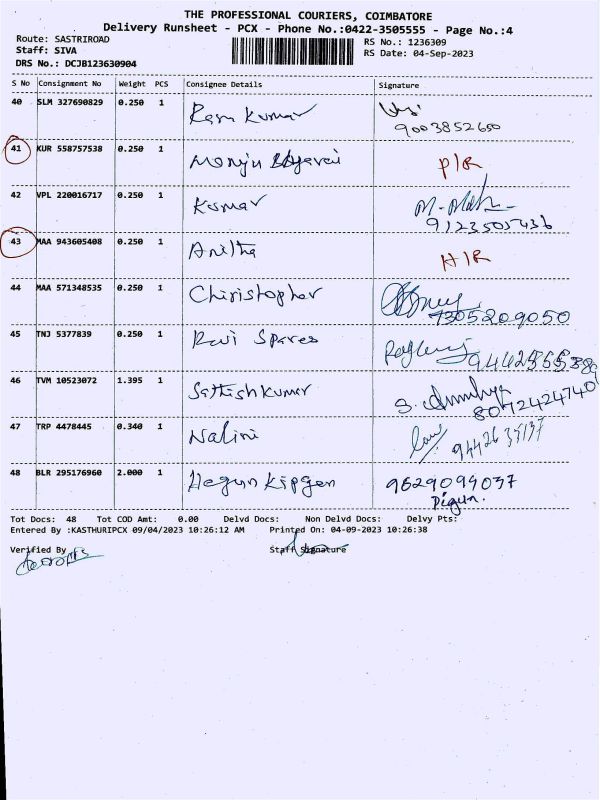 THE PROFESSIONAL COURIERS, COIMBATORE
Delivery Runsheet - PCX - Phone No.:0422-3505555 - Page No.:4
Route: SASTRIROAD
Staff: SIVA
DRS No.: DCJB123630904
RS No.: 1236309
RS Date: 04-Sep-2023
S No Consignment No Weight PCS Consignee Details Signature
40 SLM 327690829 0.250 1 Ram Kumar
9003852650
41 KUR 558757538 0.250 1 Monju P/R
42 VPL 220016717 0.250 1 Kumar
9123505436
43 MAA 943605408 0.250 1 Anitha H/R
44 MAA 571348535 0.250 1 Chiristopher
7305209050
45 TNJ 5377839 0.250 1 Ravi Spares
46 TVM 10523072 1.395 1 Sathish Kumar
8072424740
47 TRP 4478445 0.340 1 Nalini
9442635137
48 BLR 295176960 2.000 1 Hegun Kipgen 9629094037
Tot Docs: 48 Tot COD Amt: 0.00 Delvd Docs: Non Delvd Docs: Delvy Pts:
Entered By :KASTHURIPCX 09/04/2023 10:26:12 AM Printed On: 04-09-2023 10:26:38
Verified By Staff Signature